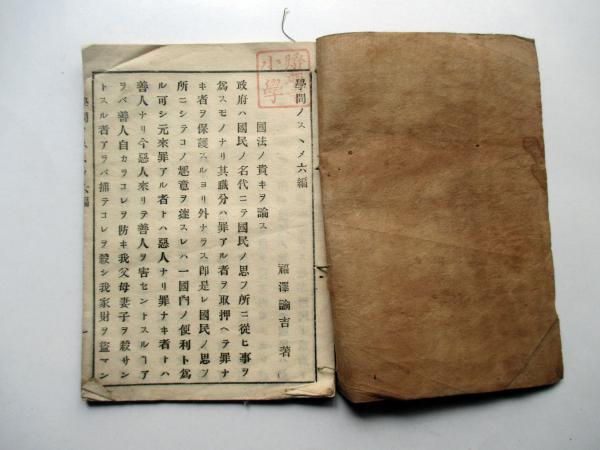 學問ノスヽメ六編
福澤諭吉 著
國法ノ貴キヲ論ス
政府ハ國民ノ名代ニテ國民ノ思フ所ニ從ヒ事ヲ
爲スモノナリ其職分ハ罪アル者ヲ取押ヘテ罪ナ
キ者ヲ保護スルヨリ外ナラス卽是レ國民ノ思フ
所ニシテコノ趣意ヲ達スレハ一國內ノ便利ト爲
ル可シ元來罪アル者トハ惡人ナリ罪ナキ者トハ
善人ナリ今惡人來リテ善人ヲ害セントスルヿア
ラバ善人自カラコレヲ防キ我父母妻子ヲ殺サン
トスル者アラバ捕テコレヲ殺シ我家財ヲ盜マン
小學